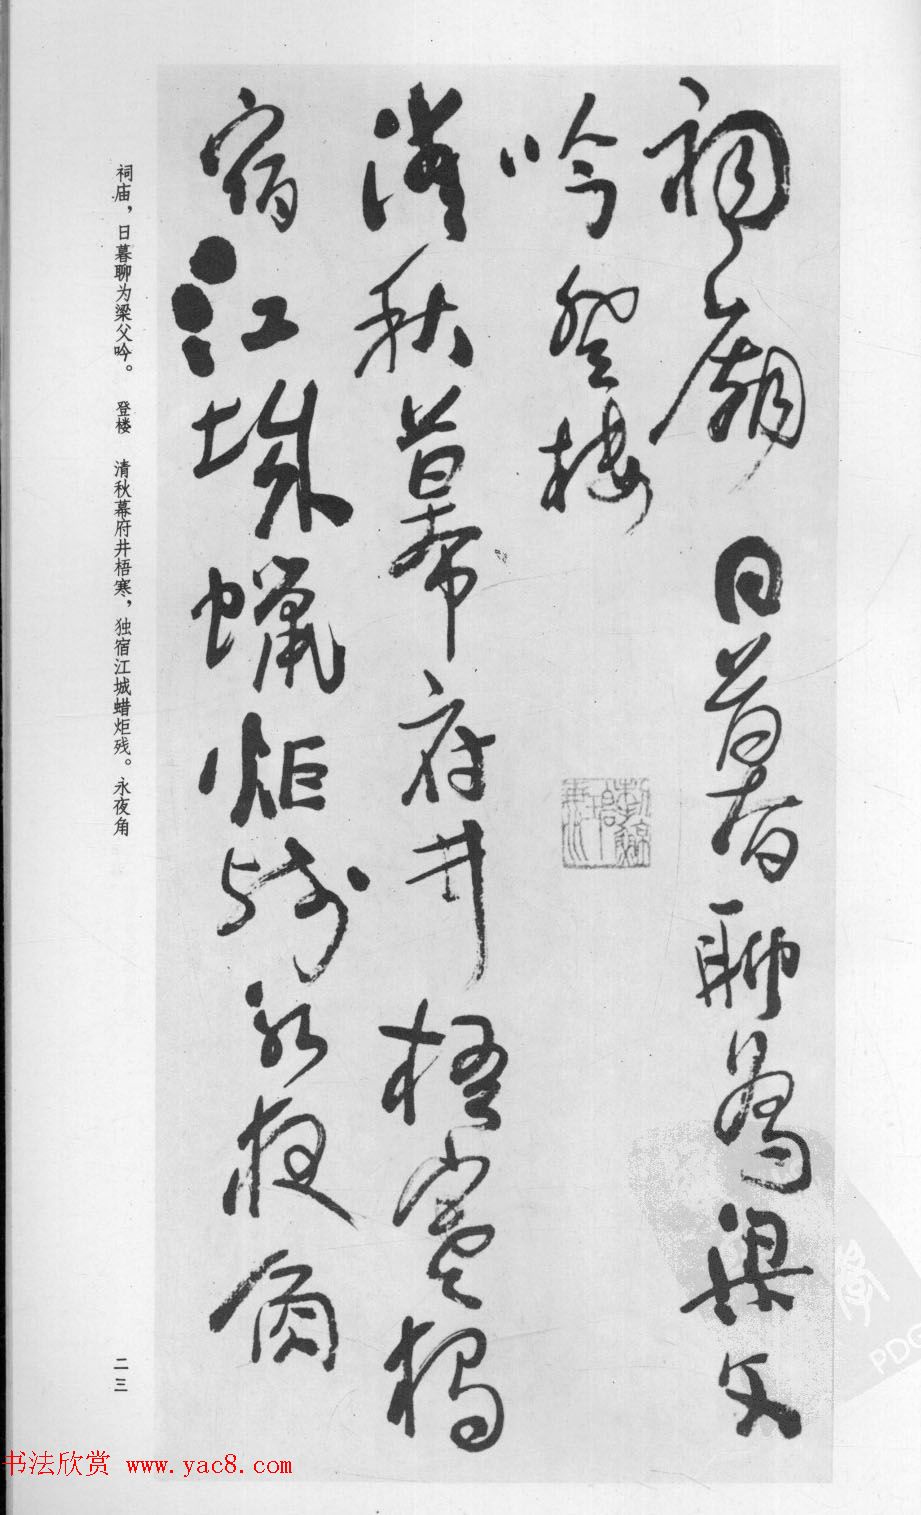 祠廟日暮聊為梁父
吟登樓
清秋幕府井梧寒獨
宿江城蠟炬殘永夜角
祠庙，日暮聊为梁父吟。 登楼 清秋幕府井梧寒，独宿江城蜡炬残。永夜角
二三
书法欣赏 www.yac8.com
PDG